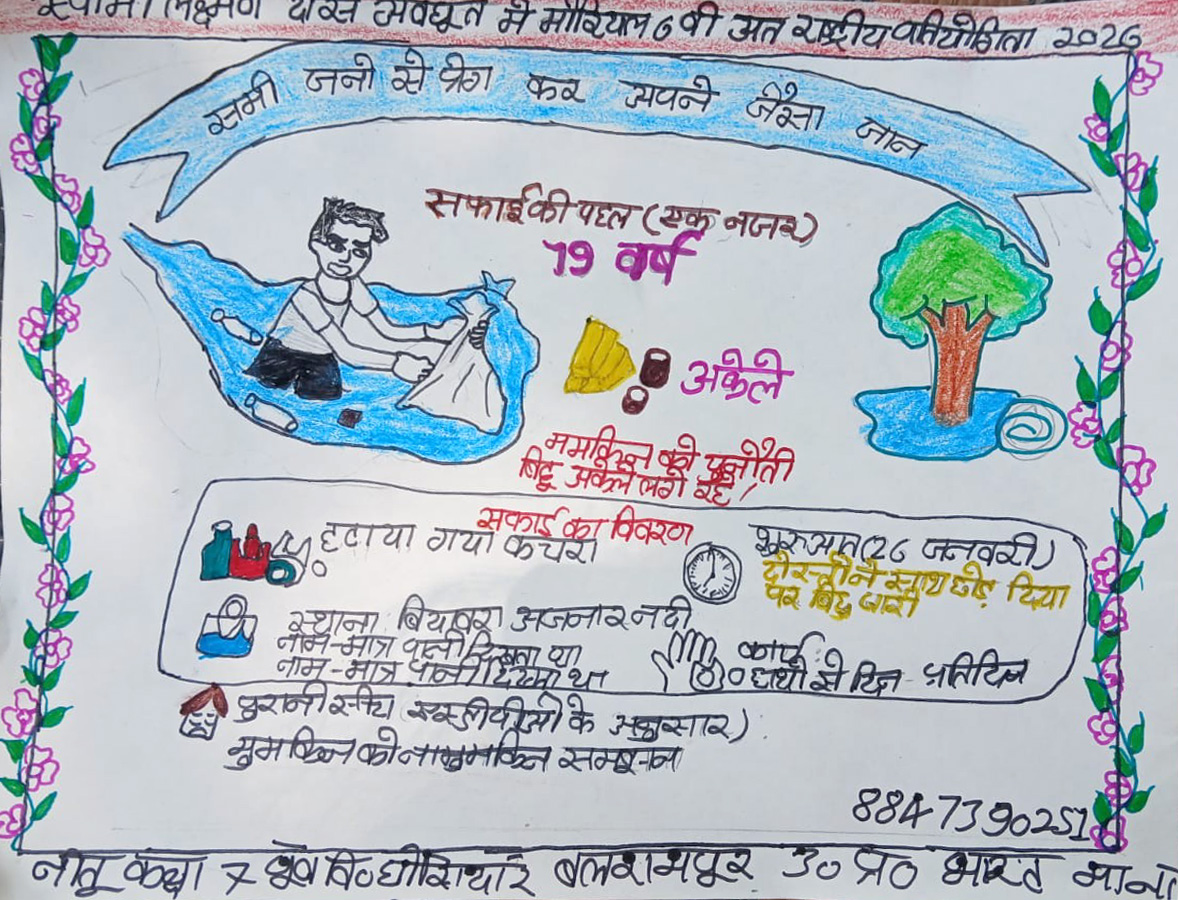 स्वामी लक्ष्मण दास अवधूत मे मोरियल 6 वी अंत राष्ट्रीय प्रतियोगिता 2026
सभी जनो से प्रेम कर अपने जैसा जान
सफाई की पहल (एक नजर)
19 वर्ष
अकेले
को चुनौती
बिट्टू अकेले लगे रहे!
सफाई का विवरण
हटाया गया कचरा
शुरुआत (26 जनवरी)
दोस्तों ने साथ छोड़ दिया
पर बिट्टू जारी
स्थाना बियावरा अजनार नदी
नाम-मात्र पानी दिखता था
नाम-मात्र पानी दिखता था
कार्य:
हाथों से दिन प्रतिदिन
पुरानी के अनुसार)
मुमकिन को नामुमकिन समझना
8847390251
नीतू कक्षा 7 बलरामपुर उ० प्र० भारत